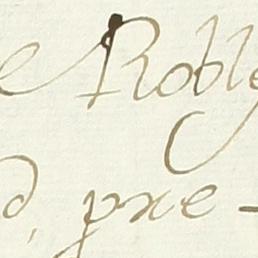 e Roble
d, pxe-